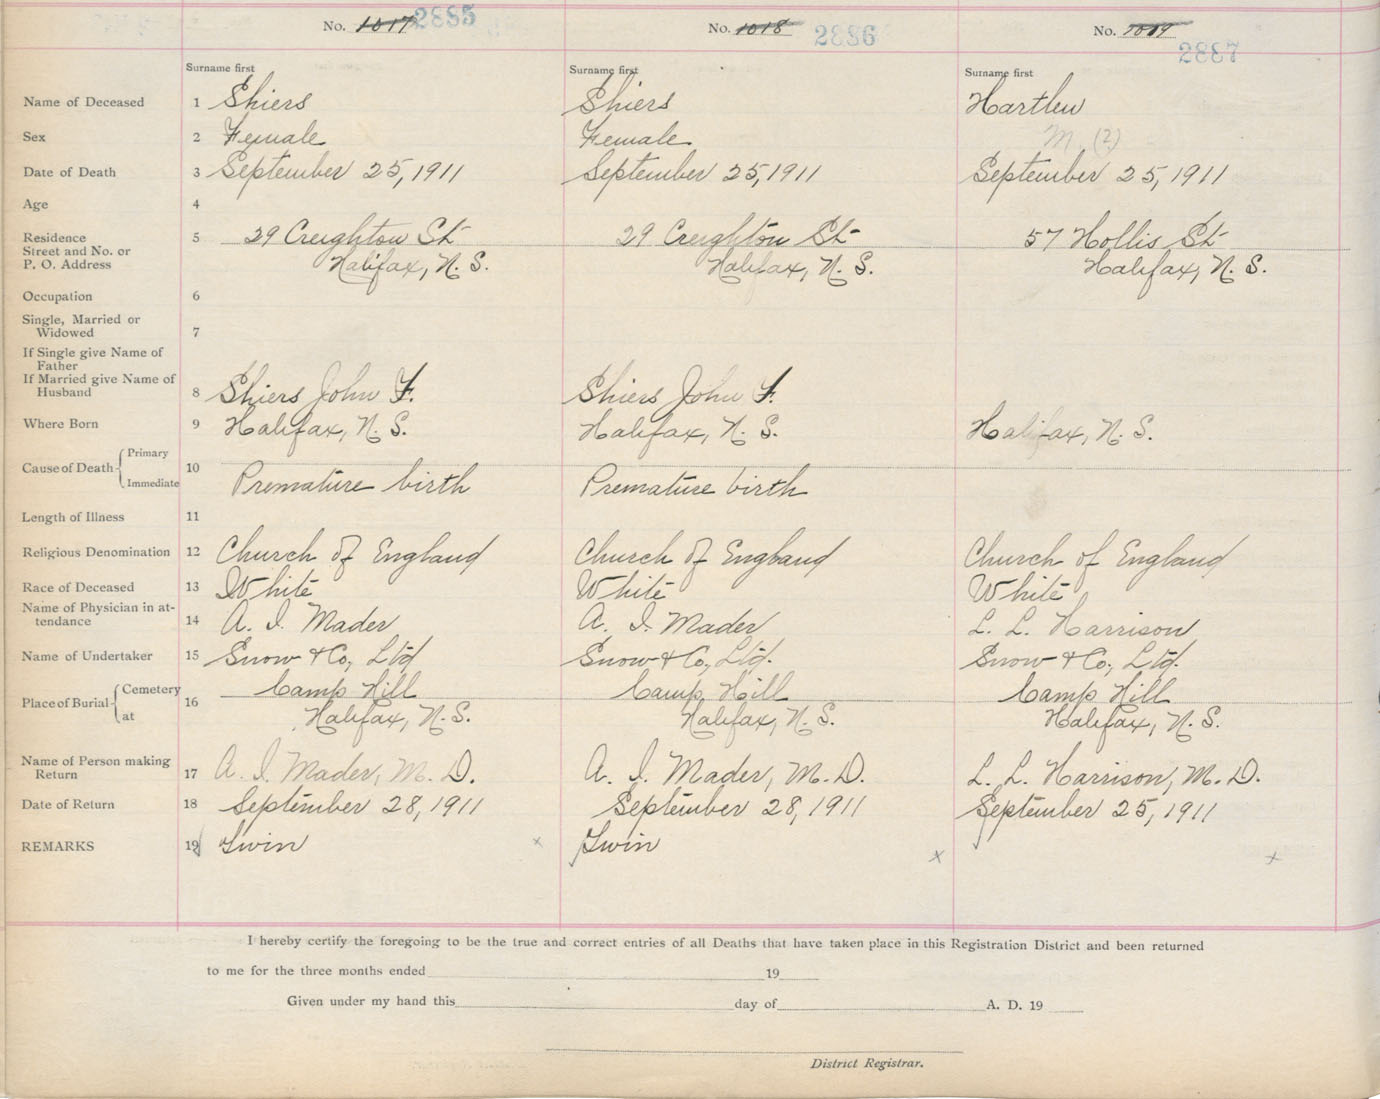 No. 1017 2885 No. 1018 2886 No. 1019 2887
Surname first Surname first Surname first
Name of Deceased 1 Shiers Shiers Hartlen
Sex 2 Female Female M. (?)
Date of Death 3 September 25, 1911 September 25, 1911 September 25, 1911
Age 4
Residence 5 29 Creighton St 29 Creighton St 57 Hollis St
Street and No. or
P. O. Address Halifax, N. S. Halifax, N. S. Halifax, N. S.
Occupation 6
Single, Married or
Widowed 7
If Single give Name of
Father
If Married give Name of
Husband 8 Shiers John F. Shiers John F.
Where Born 9 Halifax, N. S. Halifax, N. S. Halifax, N. S.
Primary
Cause of Death 10
Immediate Premature birth Premature birth
Length of Illness 11
Religious Denomination 12 Church of England Church of England Church of England
Race of Deceased 13 White White White
Name of Physician in at-
tendance 14 A. I. Mader A. I. Mader L. L. Harrison
Name of Undertaker 15 Snow & Co, Ltd Snow & Co, Ltd. Snow & Co, Ltd.
Cemetery Camp Hill Camp Hill Camp Hill
Place of Burial 16
at Halifax, N. S. Halifax, N. S. Halifax, N. S.
Name of Person making
Return 17 A. I. Mader, M. D. A. I. Mader, M. D. L. L. Harrison, M. D.
Date of Return 18 September 28, 1911 September 28, 1911 September 25, 1911
REMARKS 19 Twin x Twin x x
I hereby certify the foregoing to be the true and correct entries of all Deaths that have taken place in this Registration District and been returned
to me for the three months ended 19
Given under my hand this day of A. D. 19
District Registrar.